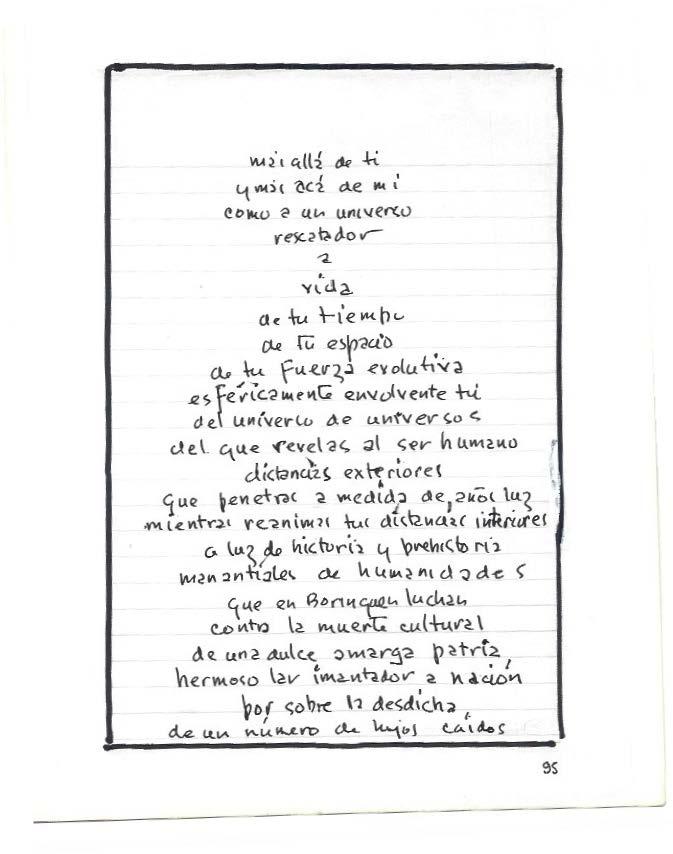 más allá de ti
y más acá de mí
como a un universo
rescatador
a
vida
de tu tiempo
de tu espacio
de tu fuerza evolutiva
esféricamente envolvente tú
del universo de universos
del que revelas al ser humano
distancias exteriores
que penetras a medida de años luz
mientras reanimas tus distancias interiores
a luz de historia y prehistoria
manantiales de humanidades
que en Borinquen luchan
contra la muerte cultural
de una dulce amarga patria,
hermoso lar imantador a nación
por sobre la desdicha
de un número de hijos caídos
95